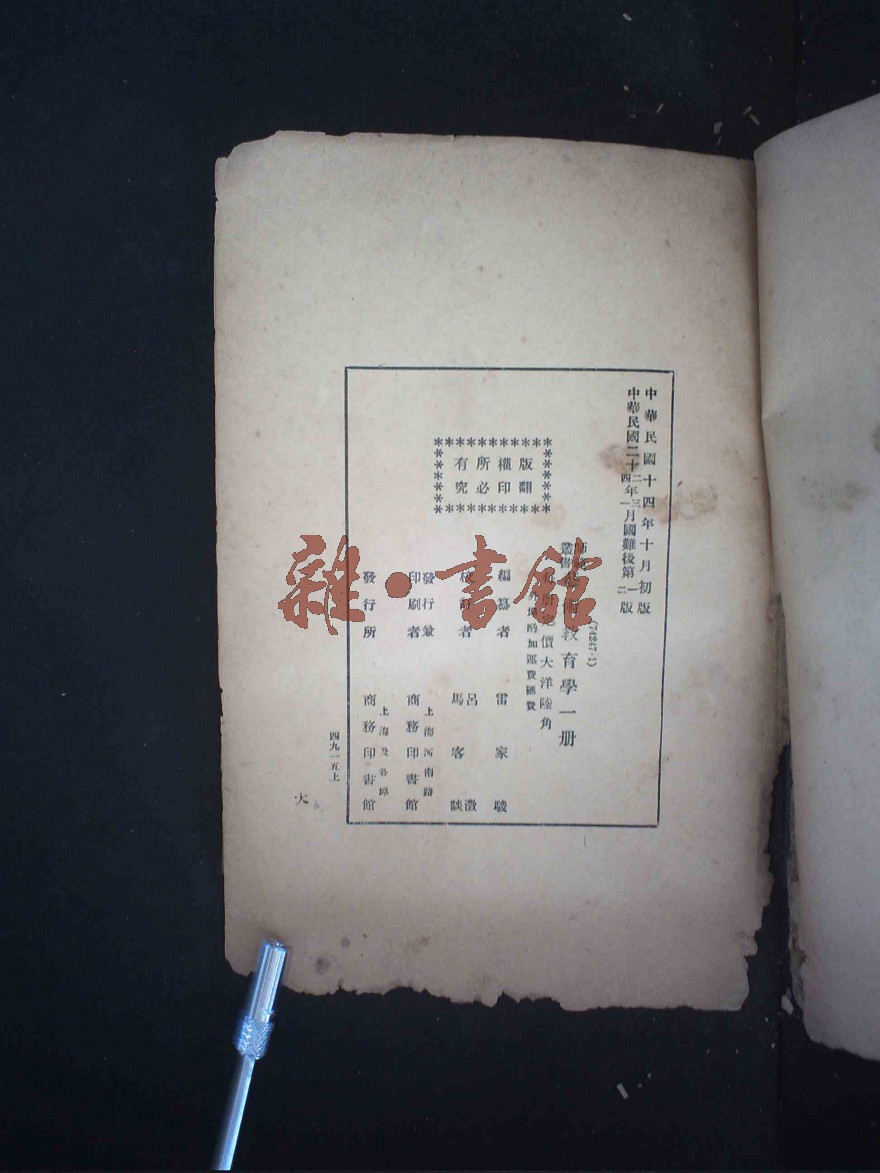 中華民國十四年十月初版
中華民國二十二年三月國難後第一版
四年一 二
(74247·1)
叢書
教育學一册
價大洋陸角
外埠酌加運費匯費
版權所有
翻印必究
編纂者 雷家駿
校訂者 呂澂
馬客談
發行兼印刷者 上海河南路
商務印書館
發行所 上海及各埠
商務印書館
四九一五上
大
雜·書館